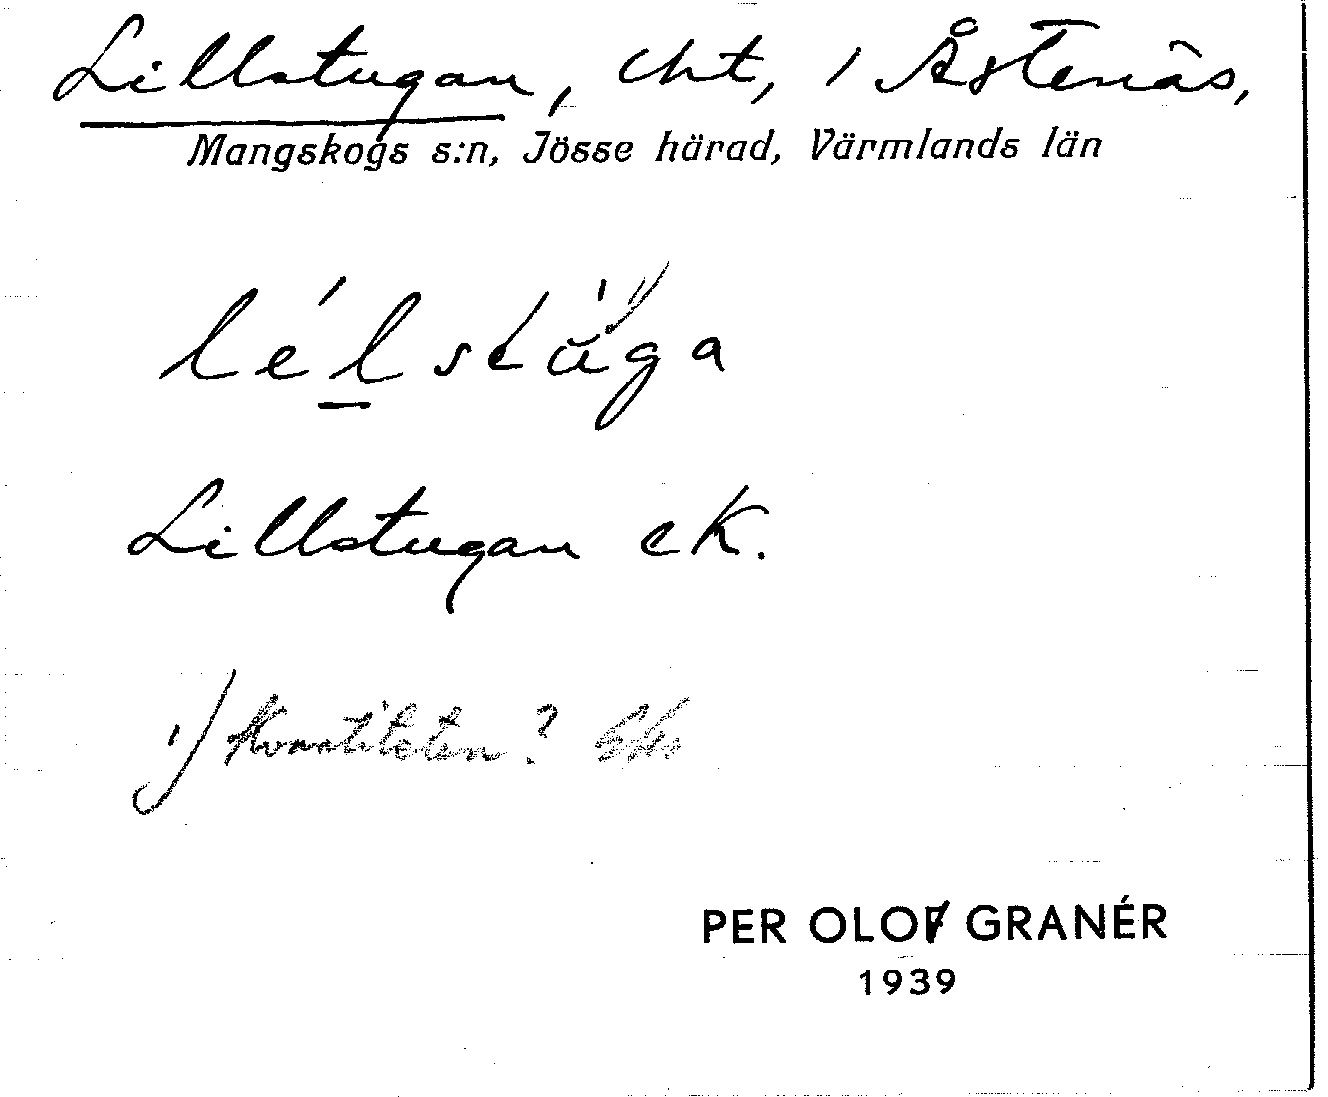 Lillstugan, cht, 1 Åstenäs,
Mangskogs s:n, Jösse härad, Värmlands län
lélstúga 1)
Lillstugan ek.
1) Kvantiteten?
PER OLOF GRANÉR
1939